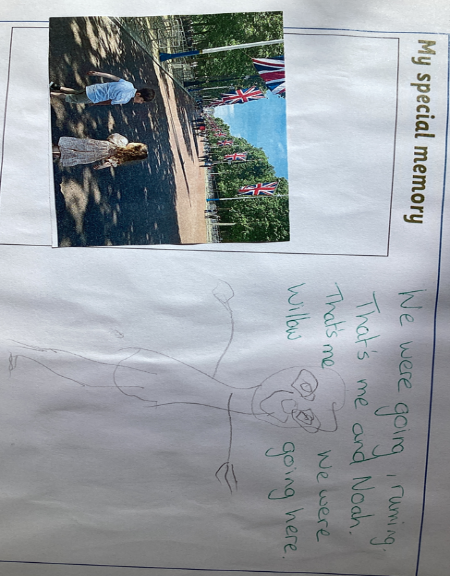 My special memory
We were going runing.
That's me and Noah.
That's me we were
Willow going here.